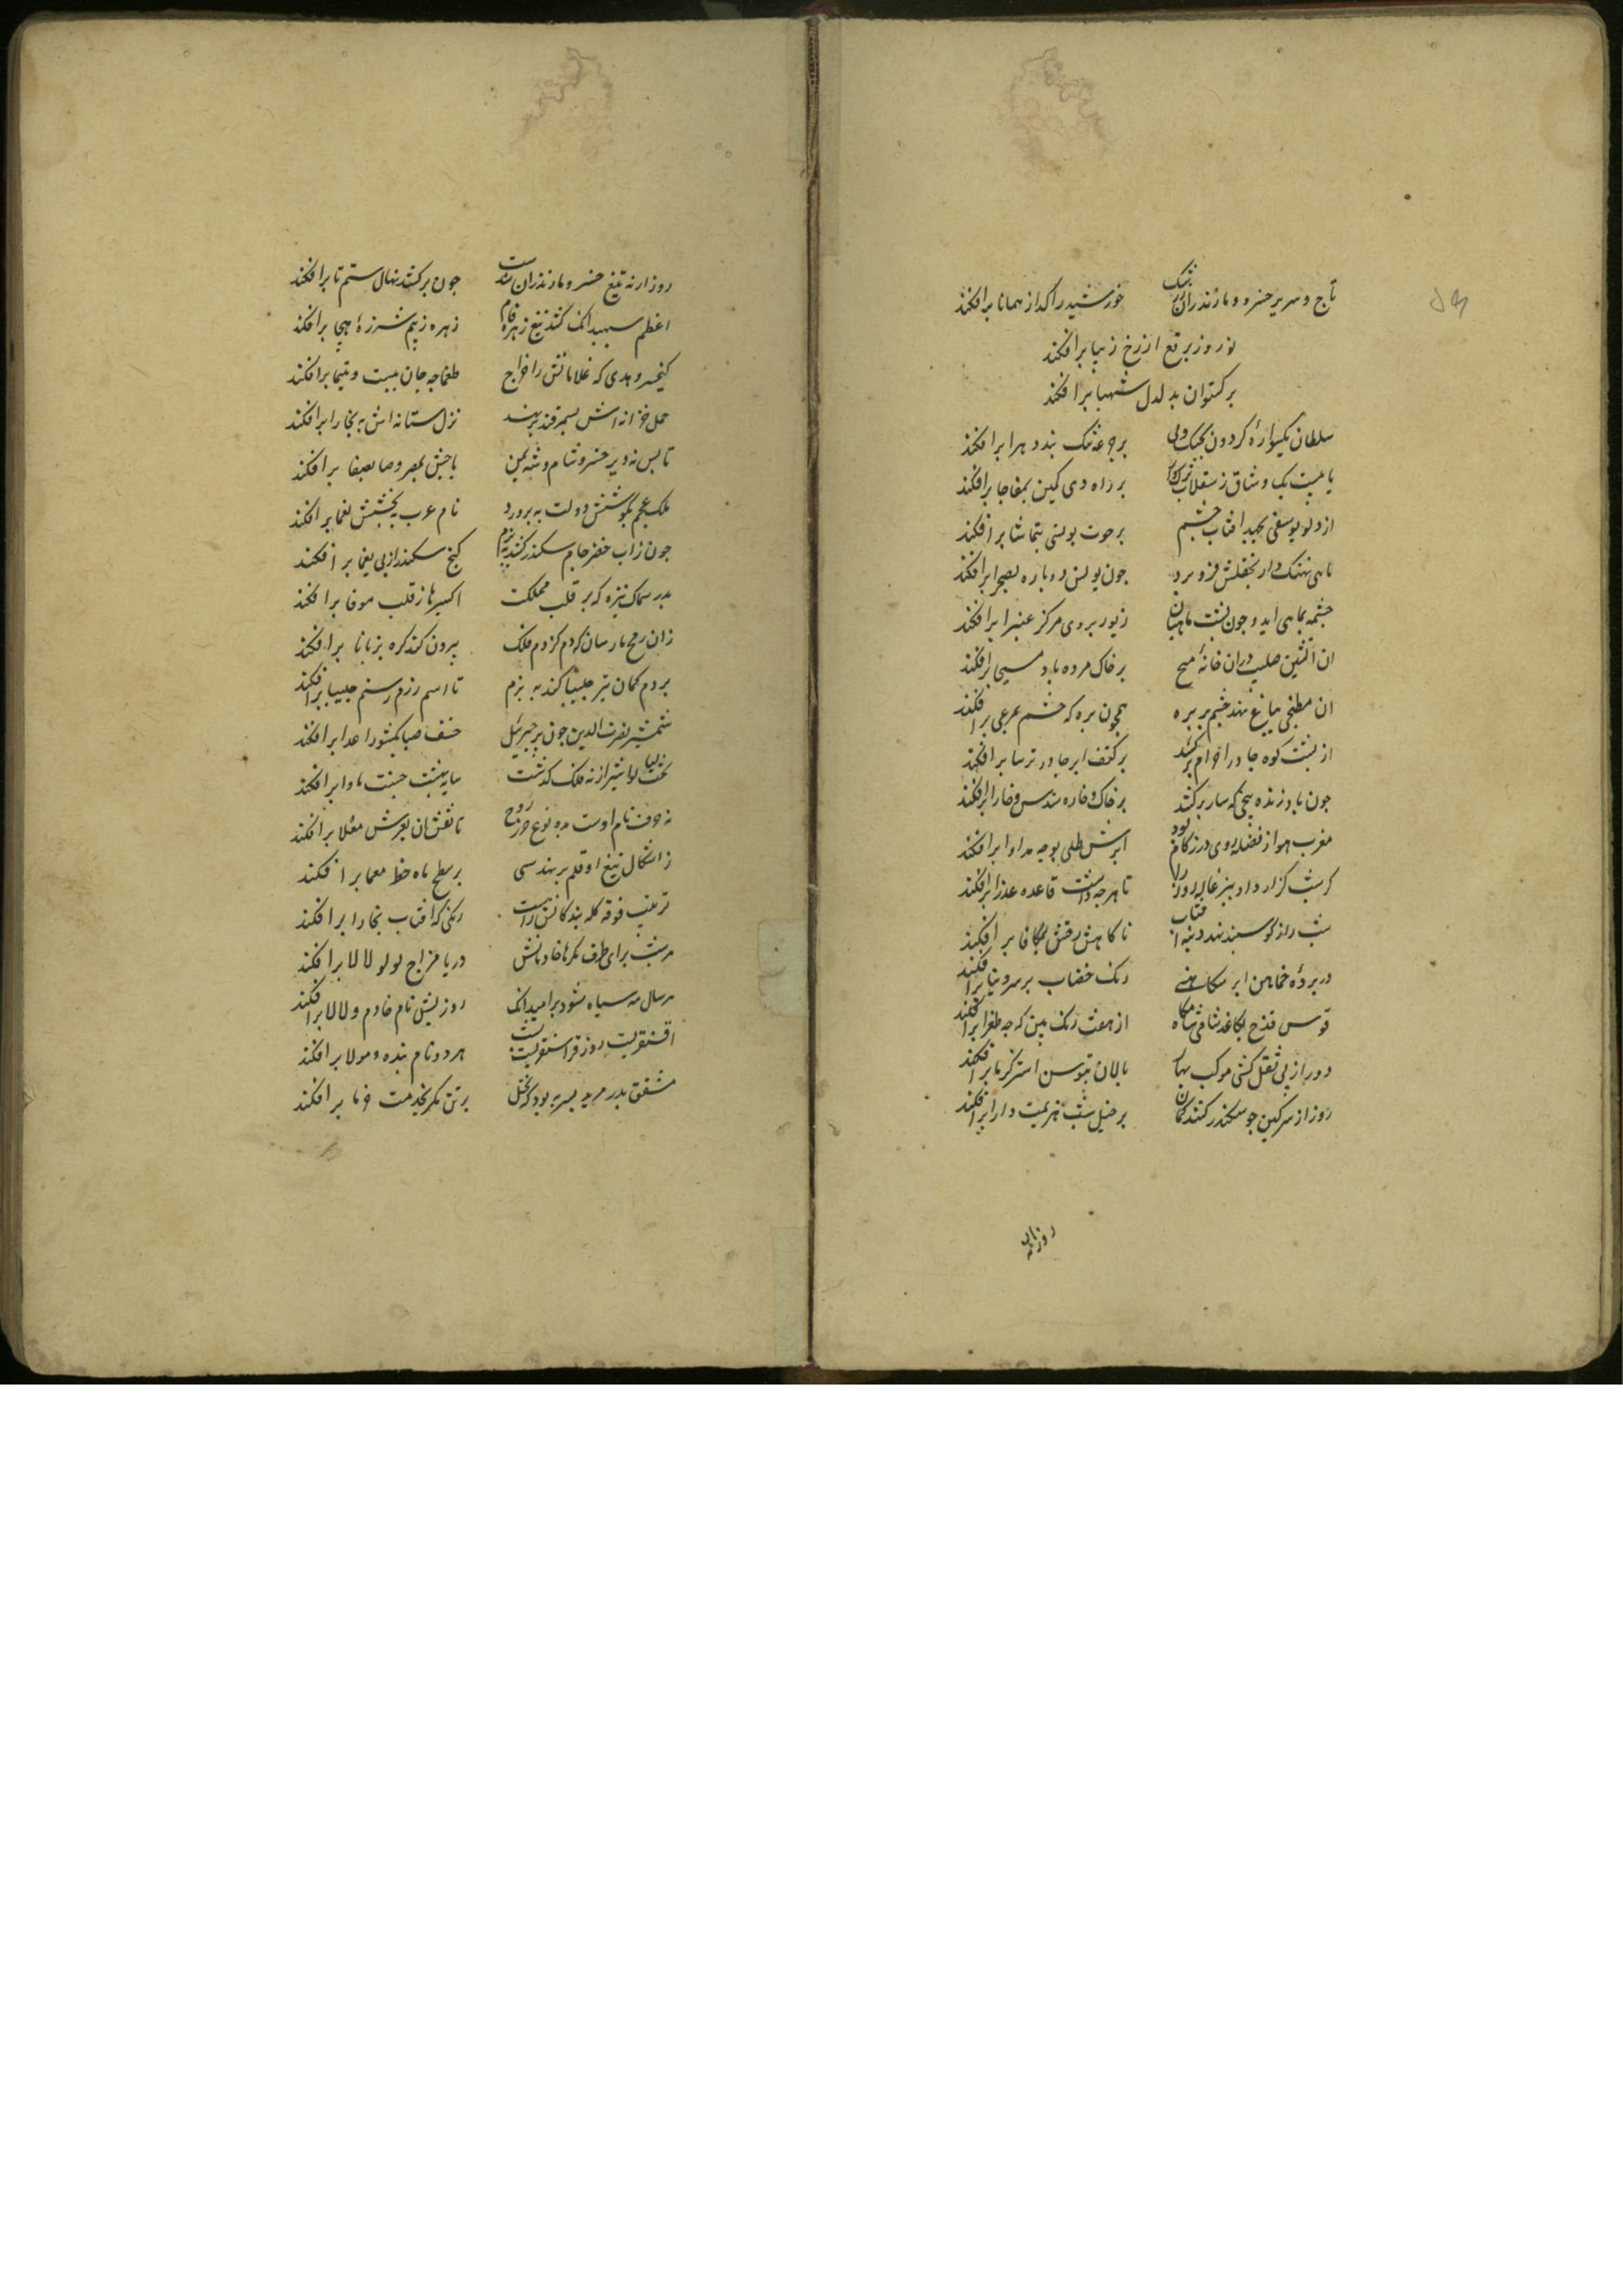 تاج و سریر خسرو مازندران ز رشک خورشید را کداز همانا برافکند
نوروز برقع از رخ زیبا برافکند
برکستوان بدلدل شهبا برافکند
سلطان یکسواره کردون بجنک دی بر جرمه تنک بندد و هرا برافکند
با بیست یک وشاق ز سقلاب ترکوار بر راه دی کمین بمفاجا برافکند
از دلو یوسفی بجهد افتاب و چشم بر حوت یونسی بتماشا برافکند
ماهی نهنک وار بحلقش فرو برد چون یونس دوباره بصحرا برافکند
چشمه بماهی اید و چون پشت ماهیان زیور بروی مرکز غبرا برافکند
ان اتشین صلیب دران خانه مسیح بر خاک مرده باد مسیحا برافکند
ان مطبخی باغ نهد چشم بر بره همچون بره که چشم بمرعی برافکند
از پشت کوه چادر احرام برکشد بر کتف ابر چادر ترسا برافکند
چون باد زنده پیچی کهسار برکشد بر خاک و خاره سندس و خارا برافکند
مغرب هوا از فضله دی در زکام بود ابرش طلی بوجه مداوا برافکند
کر شب کزار داد ببزغاله روز را تا هرچه داشت قاعده عذرا برافکند
شب را ز کوسبند نهد دنبه افتاب تا کاهش دقش بمکافا برافکند
در پرده خماهن ابر سکاهنی رنک خضاب بر سر دنیا برافکند
قوس قزح بکاغذ شامی شامکاه از هفت رنک بین که چه طغرا برافکند
دور از پی ثقل کشی موکب بهار پالان بتوسن استر کرما برافکند
روز از سر کمین چو سکندر کشد کمان بر خیل شب هزیمت دارا برافکند
روز از نه
روز ار نه تیغ خسرو مازندران شدست چون برکشد نهال ستم تا برافکند
اعظم سپهبد انک کشد تیغ زهره فام زهره ز بیم شرزه هیجا برافکند
کیخسرو هدی که غلامانش را خراج طمغاج خان بتبت و یغما برافکند
حمل خزانه اش بسمرقند برنهند نزل ستانه اش به بخارا برافکند
تا بس نه دیر خسرو شام و شه یمن باجش بمصر و صا بصنعا برافکند
ملک عجم بکوشش دولت بپرورد نام عرب ببخشش نعما برافکند
چون زاب خضر جام سکندر کشد ببزم کنج سکندر از پی یغما برافکند
بدر سماک نیزه که بر قلب مملکت اکسیرها ز قلب موفا برافکند
زان رمح مار سان که دم کژدم فلک بیرون کند کره بزبانا برافکند
بر دم کمان تیر چلیپا کند به بزم تا اسم رزم رستم چلیپا برافکند
شمشیر نصرت الدین چون پر جبرئیل خسف صبا بکشور اعدا برافکند
بخت کیا لواشیر از نه فلک کذشت سایه بهشت جنت ماوا برافکند
نه حرف نام اوست مدد نوع حرز روح تا نقش ان بعرش معلا برافکند
ز اشکال تیغ او قلم بر هندسی بر سطح ماه خط معما برافکند
ترتیب فوقه کله بندکانش راست رنکی که افتاب بخارا برافکند
هر شب برای طرف کمرهای خادمانش دریا مزاج لولو لالا برافکند
هر سال مه سیاه شود بر امید انک روزیش نام خادم و لالا برافکند
اقسنقریست روز و قراسنقریست شب هر دو نام بنده و مولا برافکند
مشفق پدر مرید پسر به بود که نخل بر تن کمر بخدمت خرما برافکند